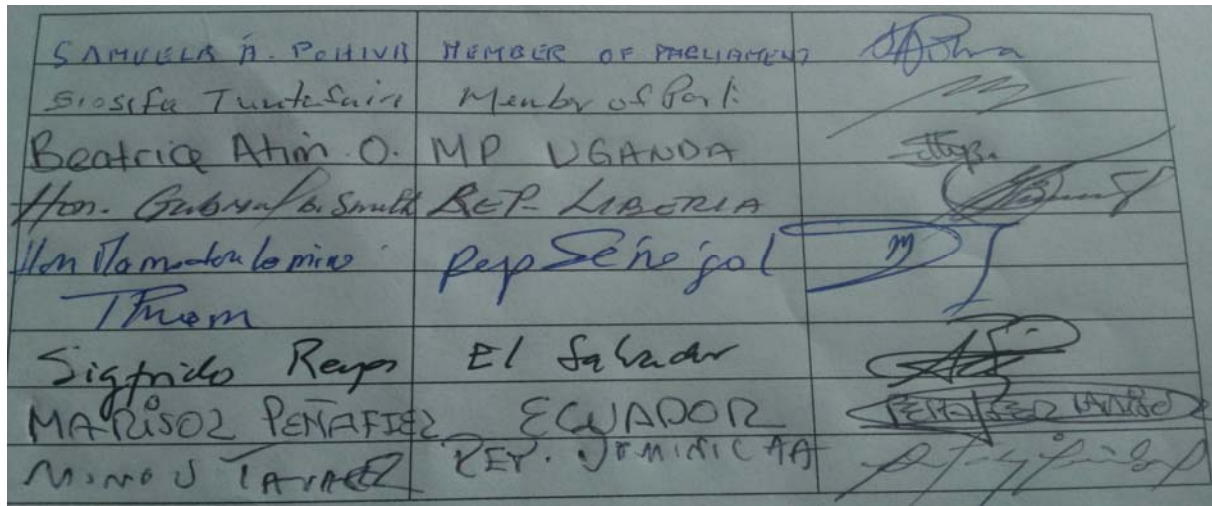 SAMUELA A. POHIVA MEMBER OF PARLIAMENT
Siosifa Member of Parl:
Beatrice Atim O. MP UGANDA
Hon. Gabriel B. Smith REP- LIBERIA
Hon Mamadou lamine Rep Sénégal
Thiam
Sigfrido Reyes El Salvador
MARISOL PEÑAFIEL ECUADOR
MINOU TAVAREZ REP. DOMINICANA